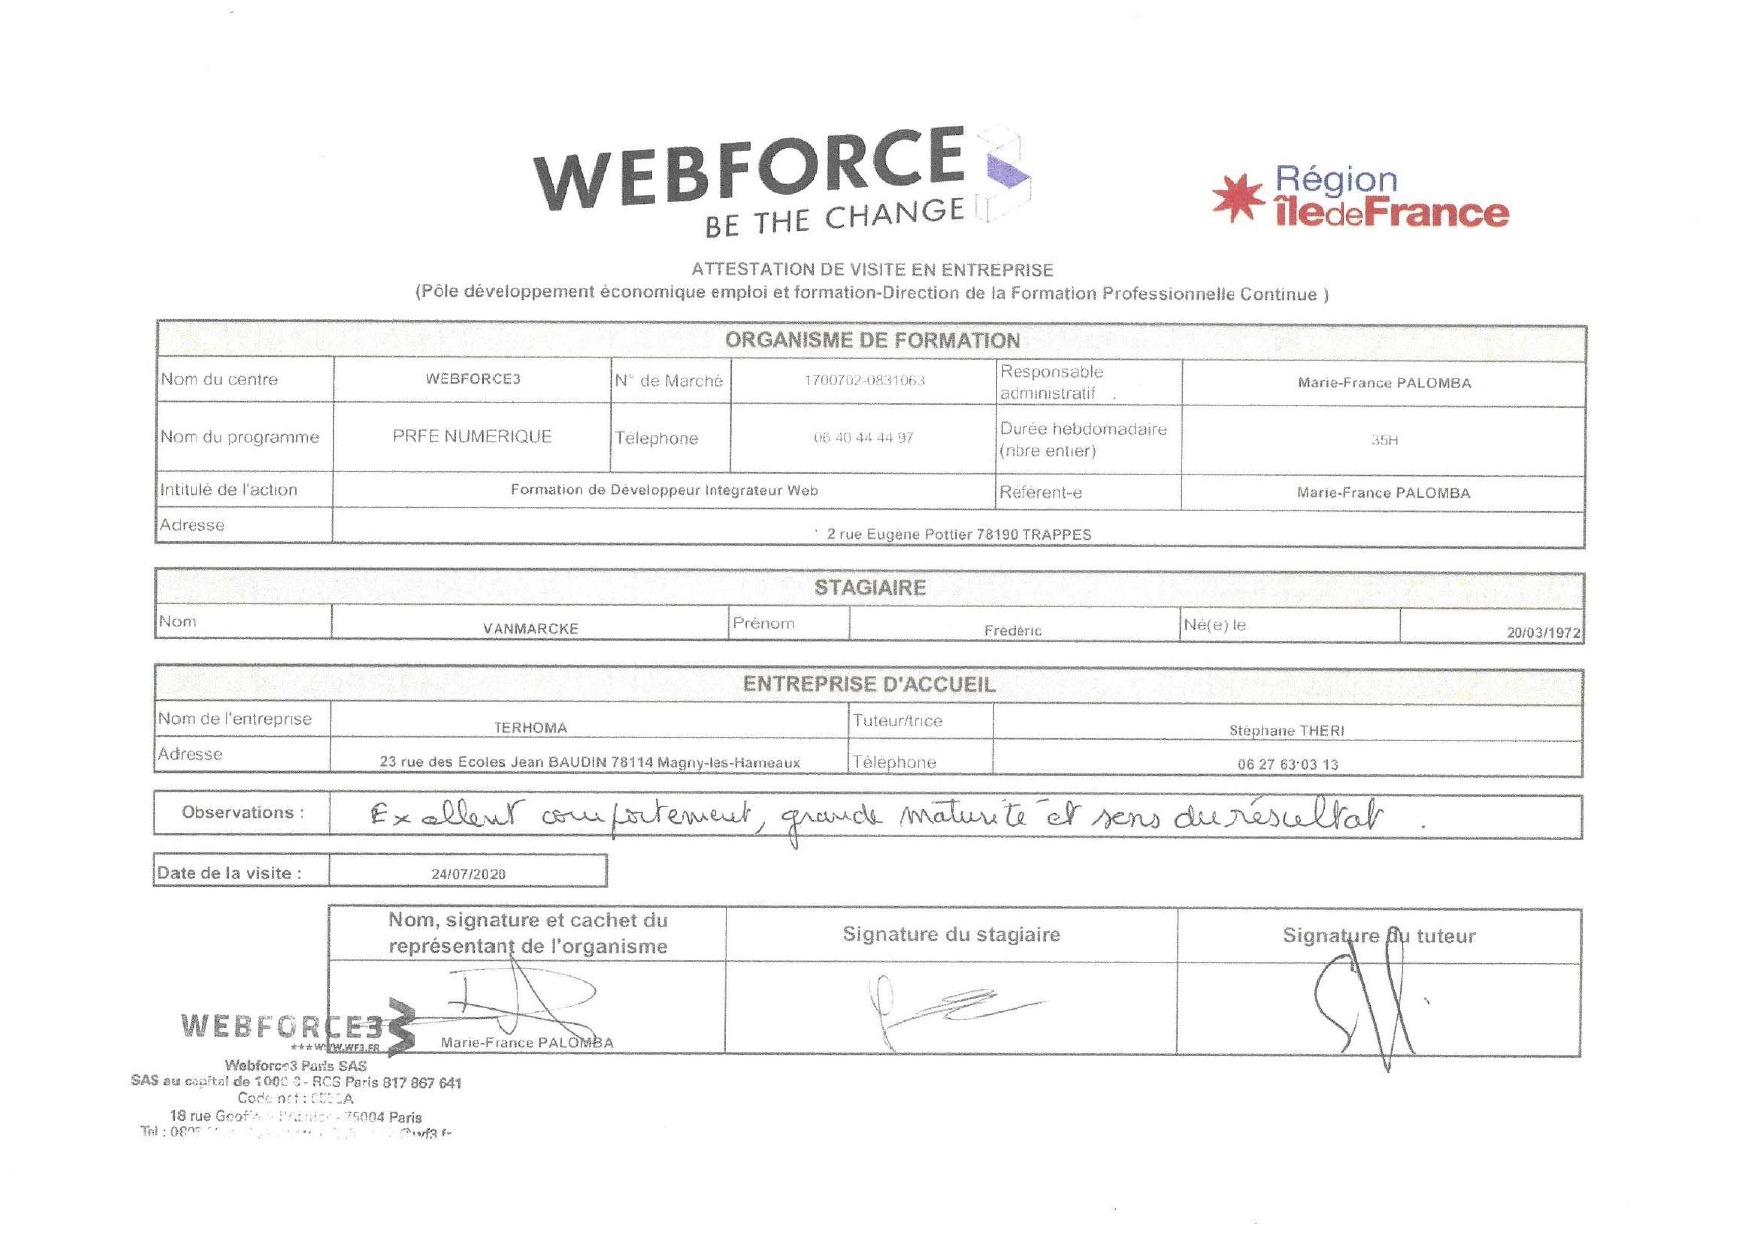 WEBFORCE3
BE THE CHANGE
Région
îledeFrance
ATTESTATION DE VISITE EN ENTREPRISE
(Pôle développement économique emploi et formation-Direction de la Formation Professionnelle Continue )
ORGANISME DE FORMATION
Nom du centre WEBFORCE3 N° de Marché 1700702-0831063 Responsable administratif Marie-France PALOMBA
Nom du programme PRFE NUMERIQUE Téléphone 06 40 44 44 97 Durée hebdomadaire (nbre entier) 35H
Intitulé de l'action Formation de Développeur Intégrateur Web Référent-e Marie-France PALOMBA
Adresse 2 rue Eugène Pottier 78190 TRAPPES
STAGIAIRE
Nom VANMARCKE Prénom Frédéric Né(e) le 20/03/1972
ENTREPRISE D'ACCUEIL
Nom de l'entreprise TERHOMA Tuteur/trice Stéphane THERI
Adresse 23 rue des Ecoles Jean BAUDIN 78114 Magny-les-Hameaux Téléphone 06 27 63 03 13
Observations : Exellent comportement, grande maturité et sens du résultat.
Date de la visite : 24/07/2020
Nom, signature et cachet du
représentant de l'organisme
Signature du stagiaire
Signature du tuteur
Marie-France PALOMBA
WEBFORCE3
***WWW.WF3.FR
Webforce3 Paris SAS
SAS au capital de - RCS Paris 817 867 641
Code
18 rue - 75004 Paris
Tél :